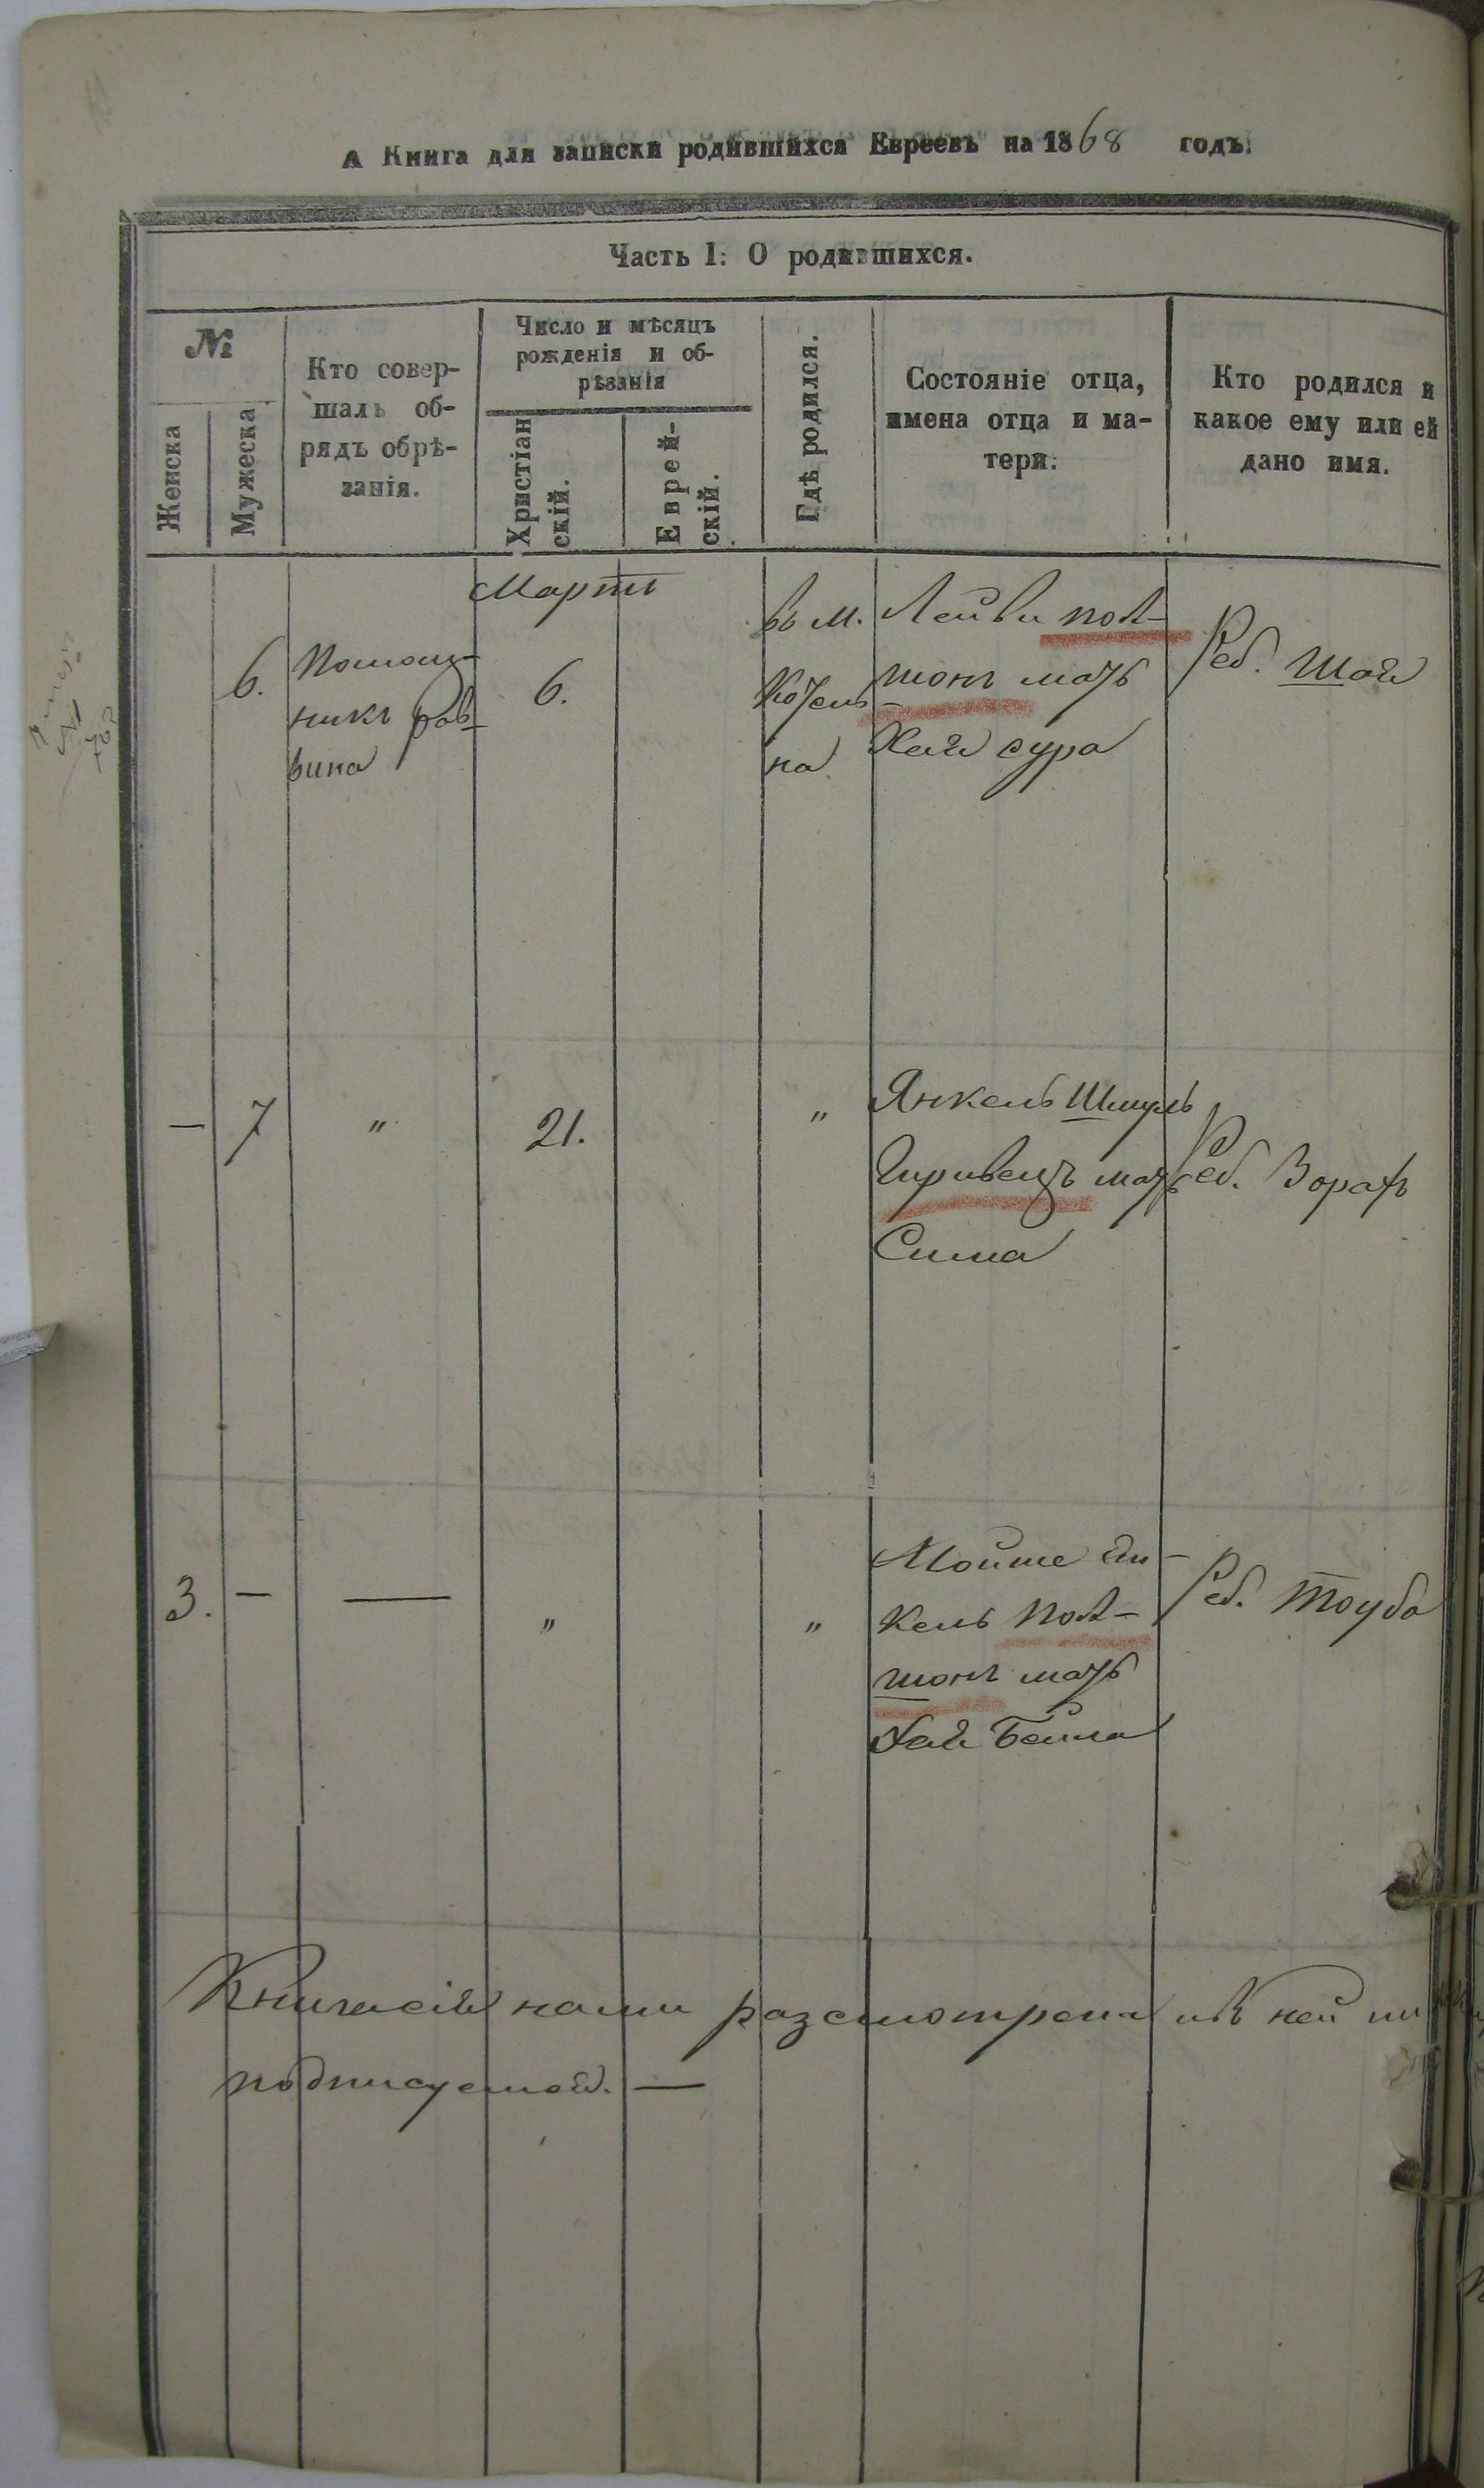 А Книга для записки родившихся Евреевъ на 1868 годъ.
Часть I: О родившихся.
№
Женска
Мужеска
Кто совер-
шалъ об-
рядъ обрѣ-
занія.
Число и мѣсяцъ
рожденія и об-
рѣзанія
Христіан
скій.
Еврей-
скій.
Гдѣ родился.
Состояніе отца,
имена отца и ма-
тери.
Кто родился и
какое ему или ей
дано имя.
Мартъ
6.
Помощ-
никъ рав-
вина
6.
въ м.
Котель-
на
Лейви пол-
шонъ мать
Хай сура
Реб. Шай
—
7
"
21.
"
Янкель Шмуль
Гиривецъ мать
Сима
Реб.
3.
—
—
"
"
Мойше
кель Пол-
шонъ мать
Хай Бейла
Реб. Тоуба
Книга сія нами разсмотрена ней
подписуемой. —